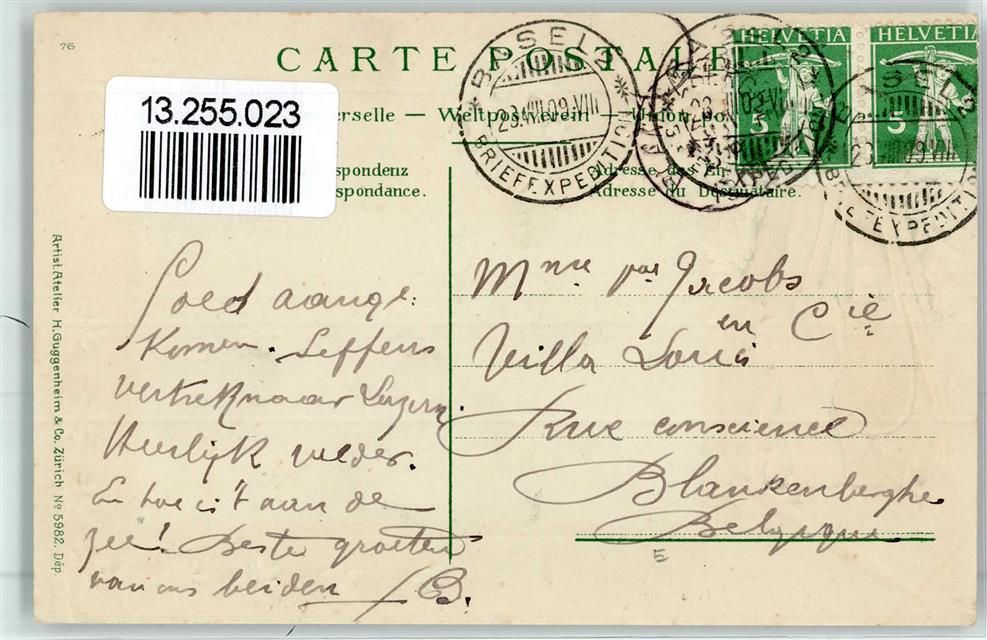 76
CARTE POSTALE
13.255.023
erselle — Weltpostverein — Union pos
spondenz
spondance.
Adresse des Em
Adresse du Destinataire.
BASEL 2
23.VIII.09.VIII
BRIEFEXPEDITION
HELVETIA
5
HELVETIA
5
BASEL 2
23.VIII.09.VIII
BRIEFEXPEDITION
Goed aange:
komen. Seffens
vertrek naar Luzern.
Heerlijk weder.
En hoe is 't aan de
zee! Beste groeten
van ons beiden
B.
Jacobs
en Cie
Villa Louis
Rue conscience
Blankenberghe
Belgique
5
Artist. Atelier H. Guggenheim & Co. Zürich No 5982. Dép.